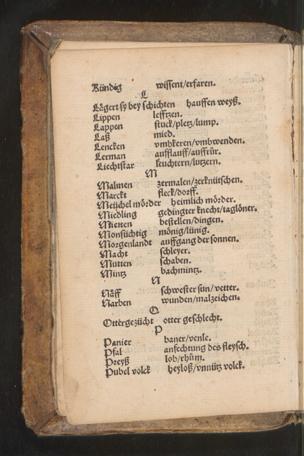 Kündig wissent/erfaren.
L
Lögert sy bey schichten hauffen weyß.
Lippen lefftzen.
Lappen stuck/pletz/lump.
Laß mied.
Lencken vmbkeren/vmbwenden.
Lerman aufflauff/auffrür.
Liechtstar leuchtern/lutzern.
M
Malmen zermalen/zerknütschen.
Marckt fleck/dorff.
Meüchel mörder heimlich mörder.
Miedling gedingter knecht/taglöner.
Mieten bestellen/dingen.
Monsüchtig mönig/lünig.
Morgenlandt auffgang der sonnen.
Macht schleyer.
Mutten schaben.
Müntz bachmintz.
N
Näff schwester sun/vetter.
Narben wunden/malzeichen.
O
Ottergezücht otter geschlecht.
P
Panier baner/venle.
Pfal anfechtung des fleysch.
Preyß lob/rhům.
Pubel volck heyloß/vnnütz volck.